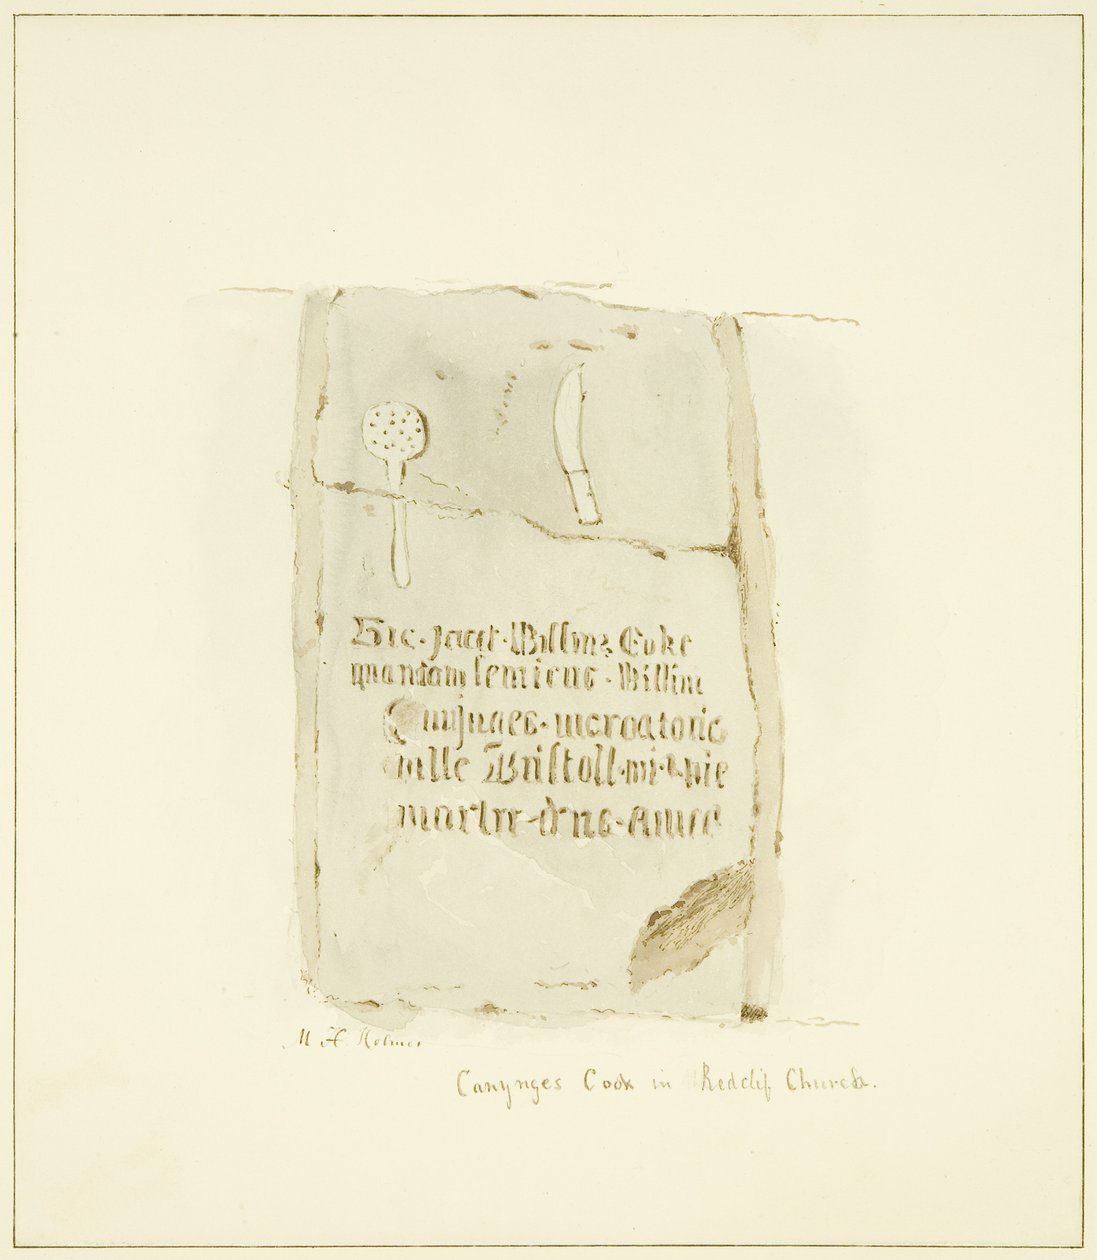 Hic · Jacet · Willms Coke
quandam servicus · Willim
Canynges · mercatoris
ville Bristoll · cui · a · pie
dns · Amen
M H Holmes
Canynges Cook in Redclif Church.